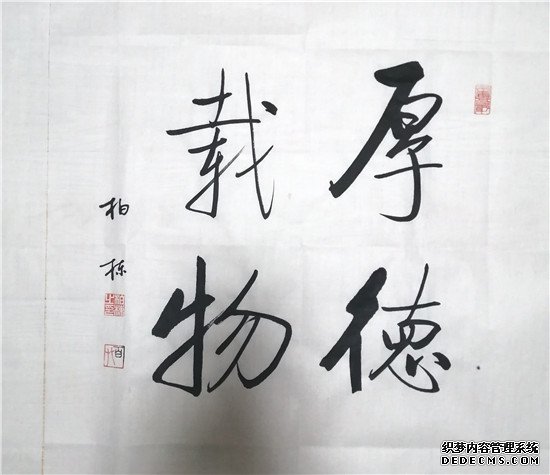 厚德
载物
柏栋
织梦内容管理系统
DEDECMS.COM